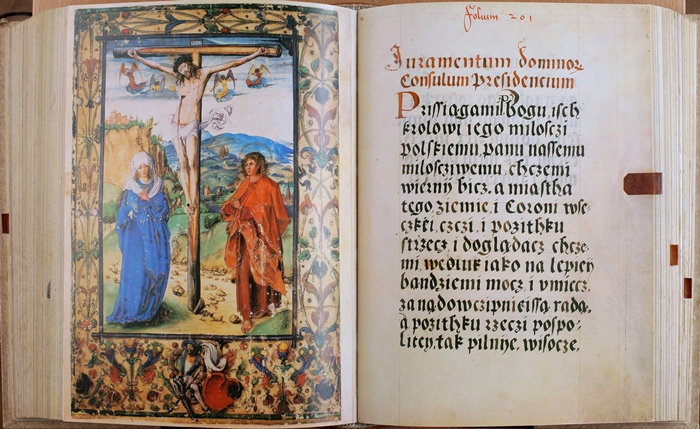 Folium 201
Iuramentum dominor
Consulum Presidencium
Prissiagami Bogu, isch
krolowi iego milosczi
polskiemu, panu nassemu
miloscziwemu, chczemi
wierny bicz, a miastha
tego ziemie, i Coroni wſe
czkei, czczi, i pozithku
ſtrzecz, i dogladacz chcze
mi, wedluk iako na lepiey
bandziemi mocz, i vmiecz,
za nadowczipnieiſſa rada,
a pozithku rzeczi poſpo-
litey, tak pilnye, wiſocze,